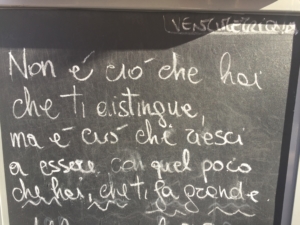 Non è ciò che hai
che ti distingue,
ma è ciò che riesci
a essere, con quel poco
che hai, che ti fa grande.